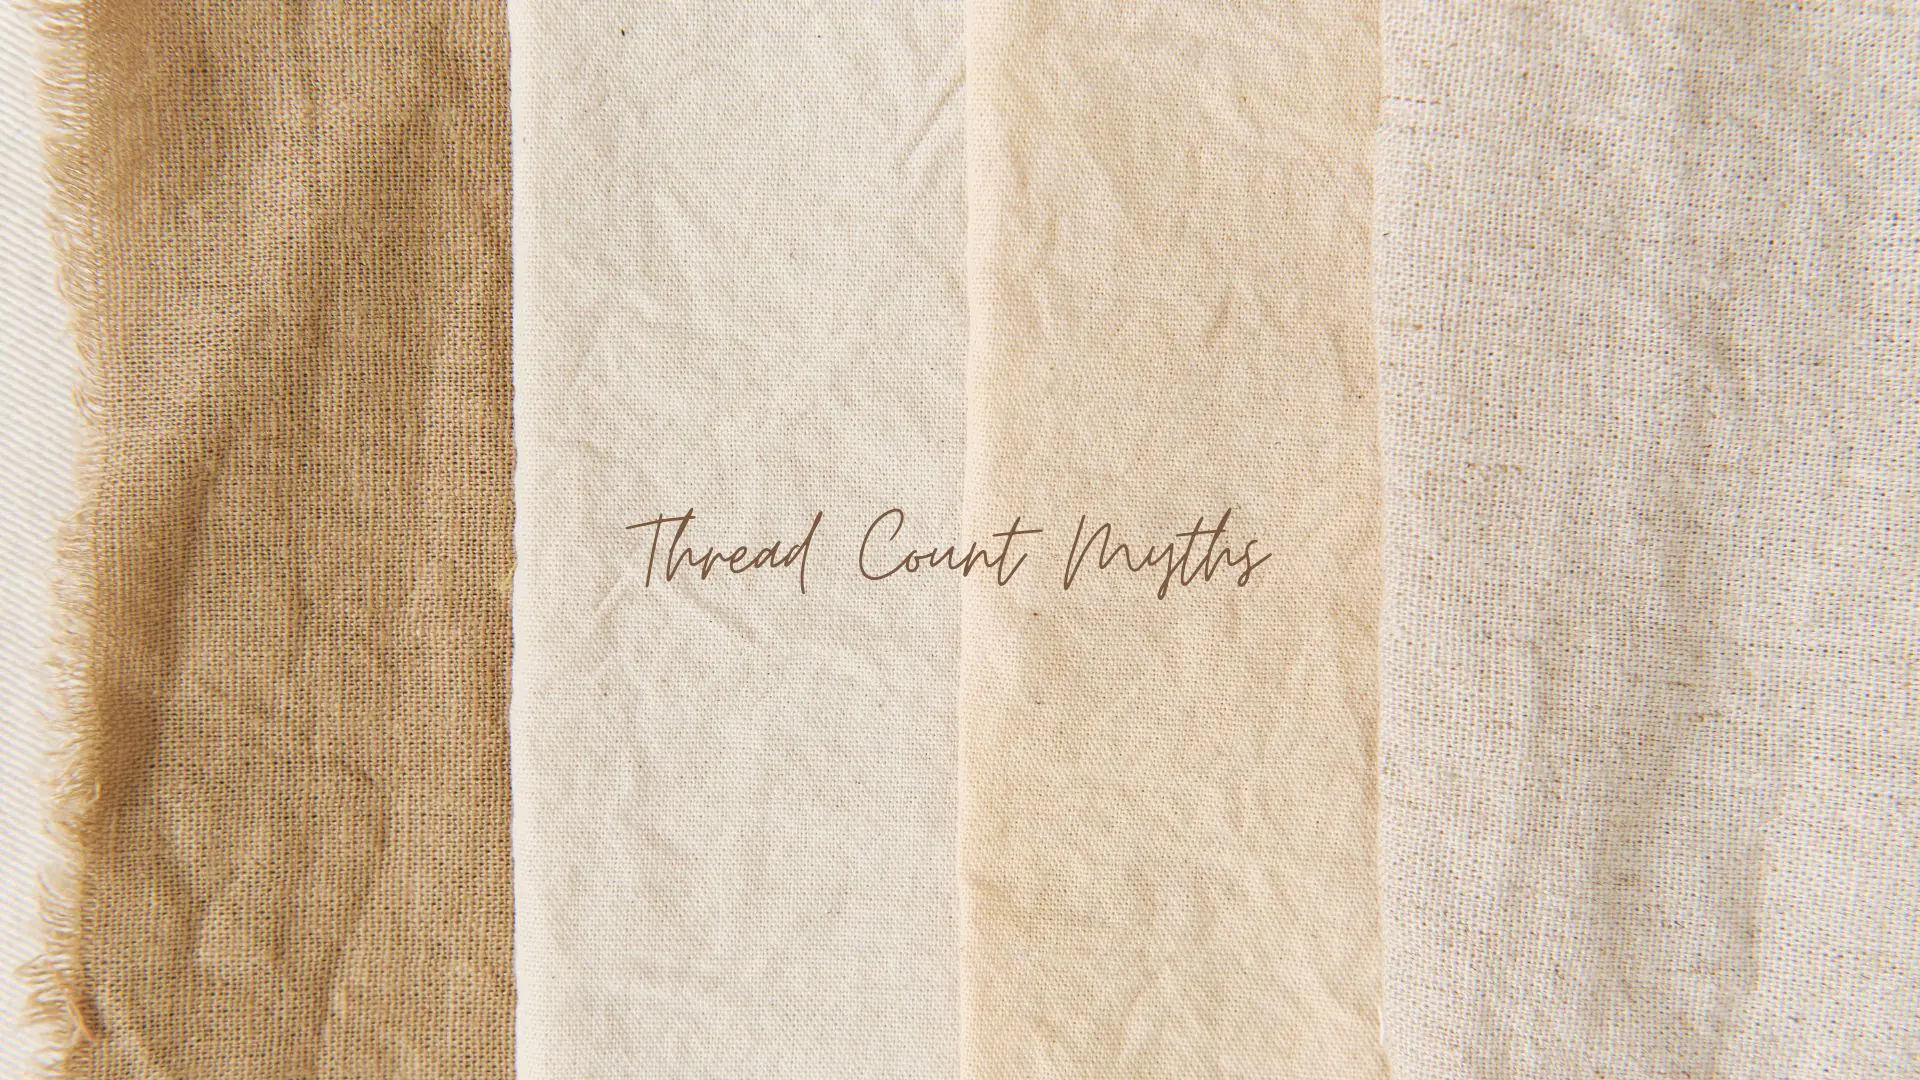 Thread Count Myths